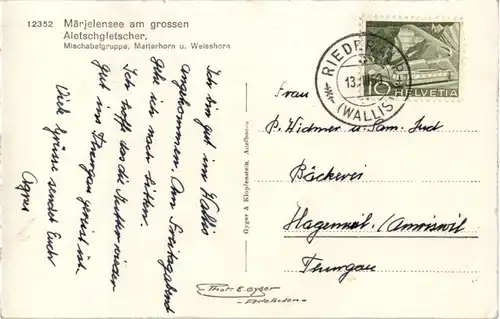 12352 Märjelensee am grossen
Aletschgletscher.
Mischabelgruppe, Matterhorn u. Weisshorn
Ich bin gut im Wallis
angekommen. Am Freitagabend
gehe ich nach Sitten.
Ich hoffe das die Mutter wieder
gut im Thurgau gereist ist.
Viele Grüsse sendet Euch
Agnes
Gyger & Klopfenstein, Adelboden
RIEDERALP
(WALLIS)
10 HELVETIA
Frau
P. Widmer u. Fam.
Bäckerei
Hagenwil /Amriswil
Thurgau
Phot. E. Gyger
Adelboden